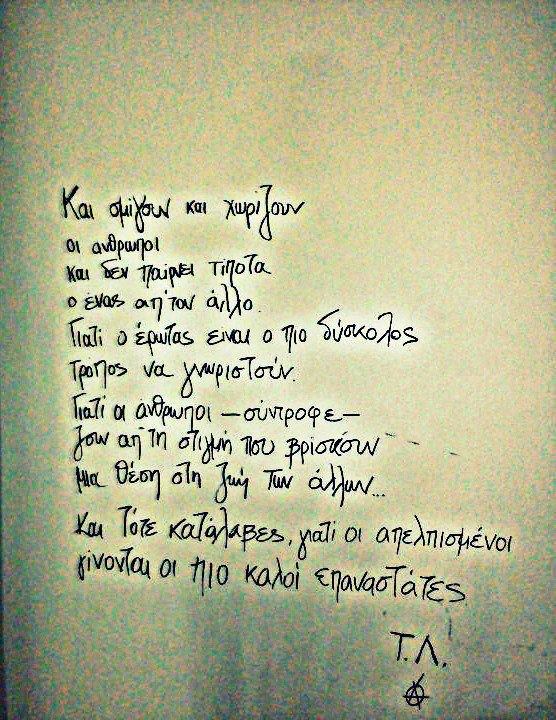 Και σμίγουν και χωρίζουν
οι ανθρωποι
και δεν παίρνει τιποτα
ο ένας απ'τον άλλο.
Γιατι ο έρωτας ειναι ο πιο δύσκολος
τροπος να γνωριστούν.
Γιατι οι ανθρωποι —σύντροφε—
ζουν απ'τη στιγμή που βρίσκουν
μια θέση στη ζωή των άλλων...
Και τότε κατάλαβες, γιατι οι απελπισμένοι
γίνονται οι πιο καλοί επαναστάτες
Τ.Λ.